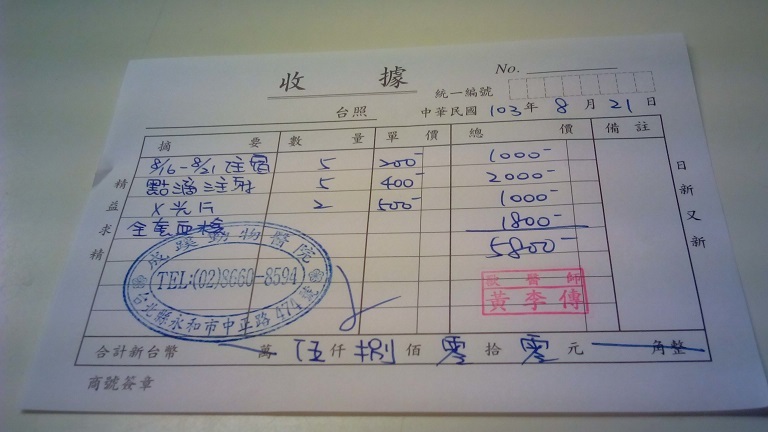 收據
No.
統一編號
台照 中華民國 103 年 8 月 21 日
摘要 數量 單價 總價 備註
8/16-8/21 住宿 5 200- 1000-
點滴注射 5 400- 2000-
X光片 2 500- 1000-
全套血檢 1800-
5800-
精益求精
日新又新
成蹊動物醫院
TEL:(02)8660-8594
台北縣永和市中正路474號
獸醫師
黃李傳
合計新台幣 萬 伍 仟 捌 佰 零 拾 零 元 角整
商號簽章